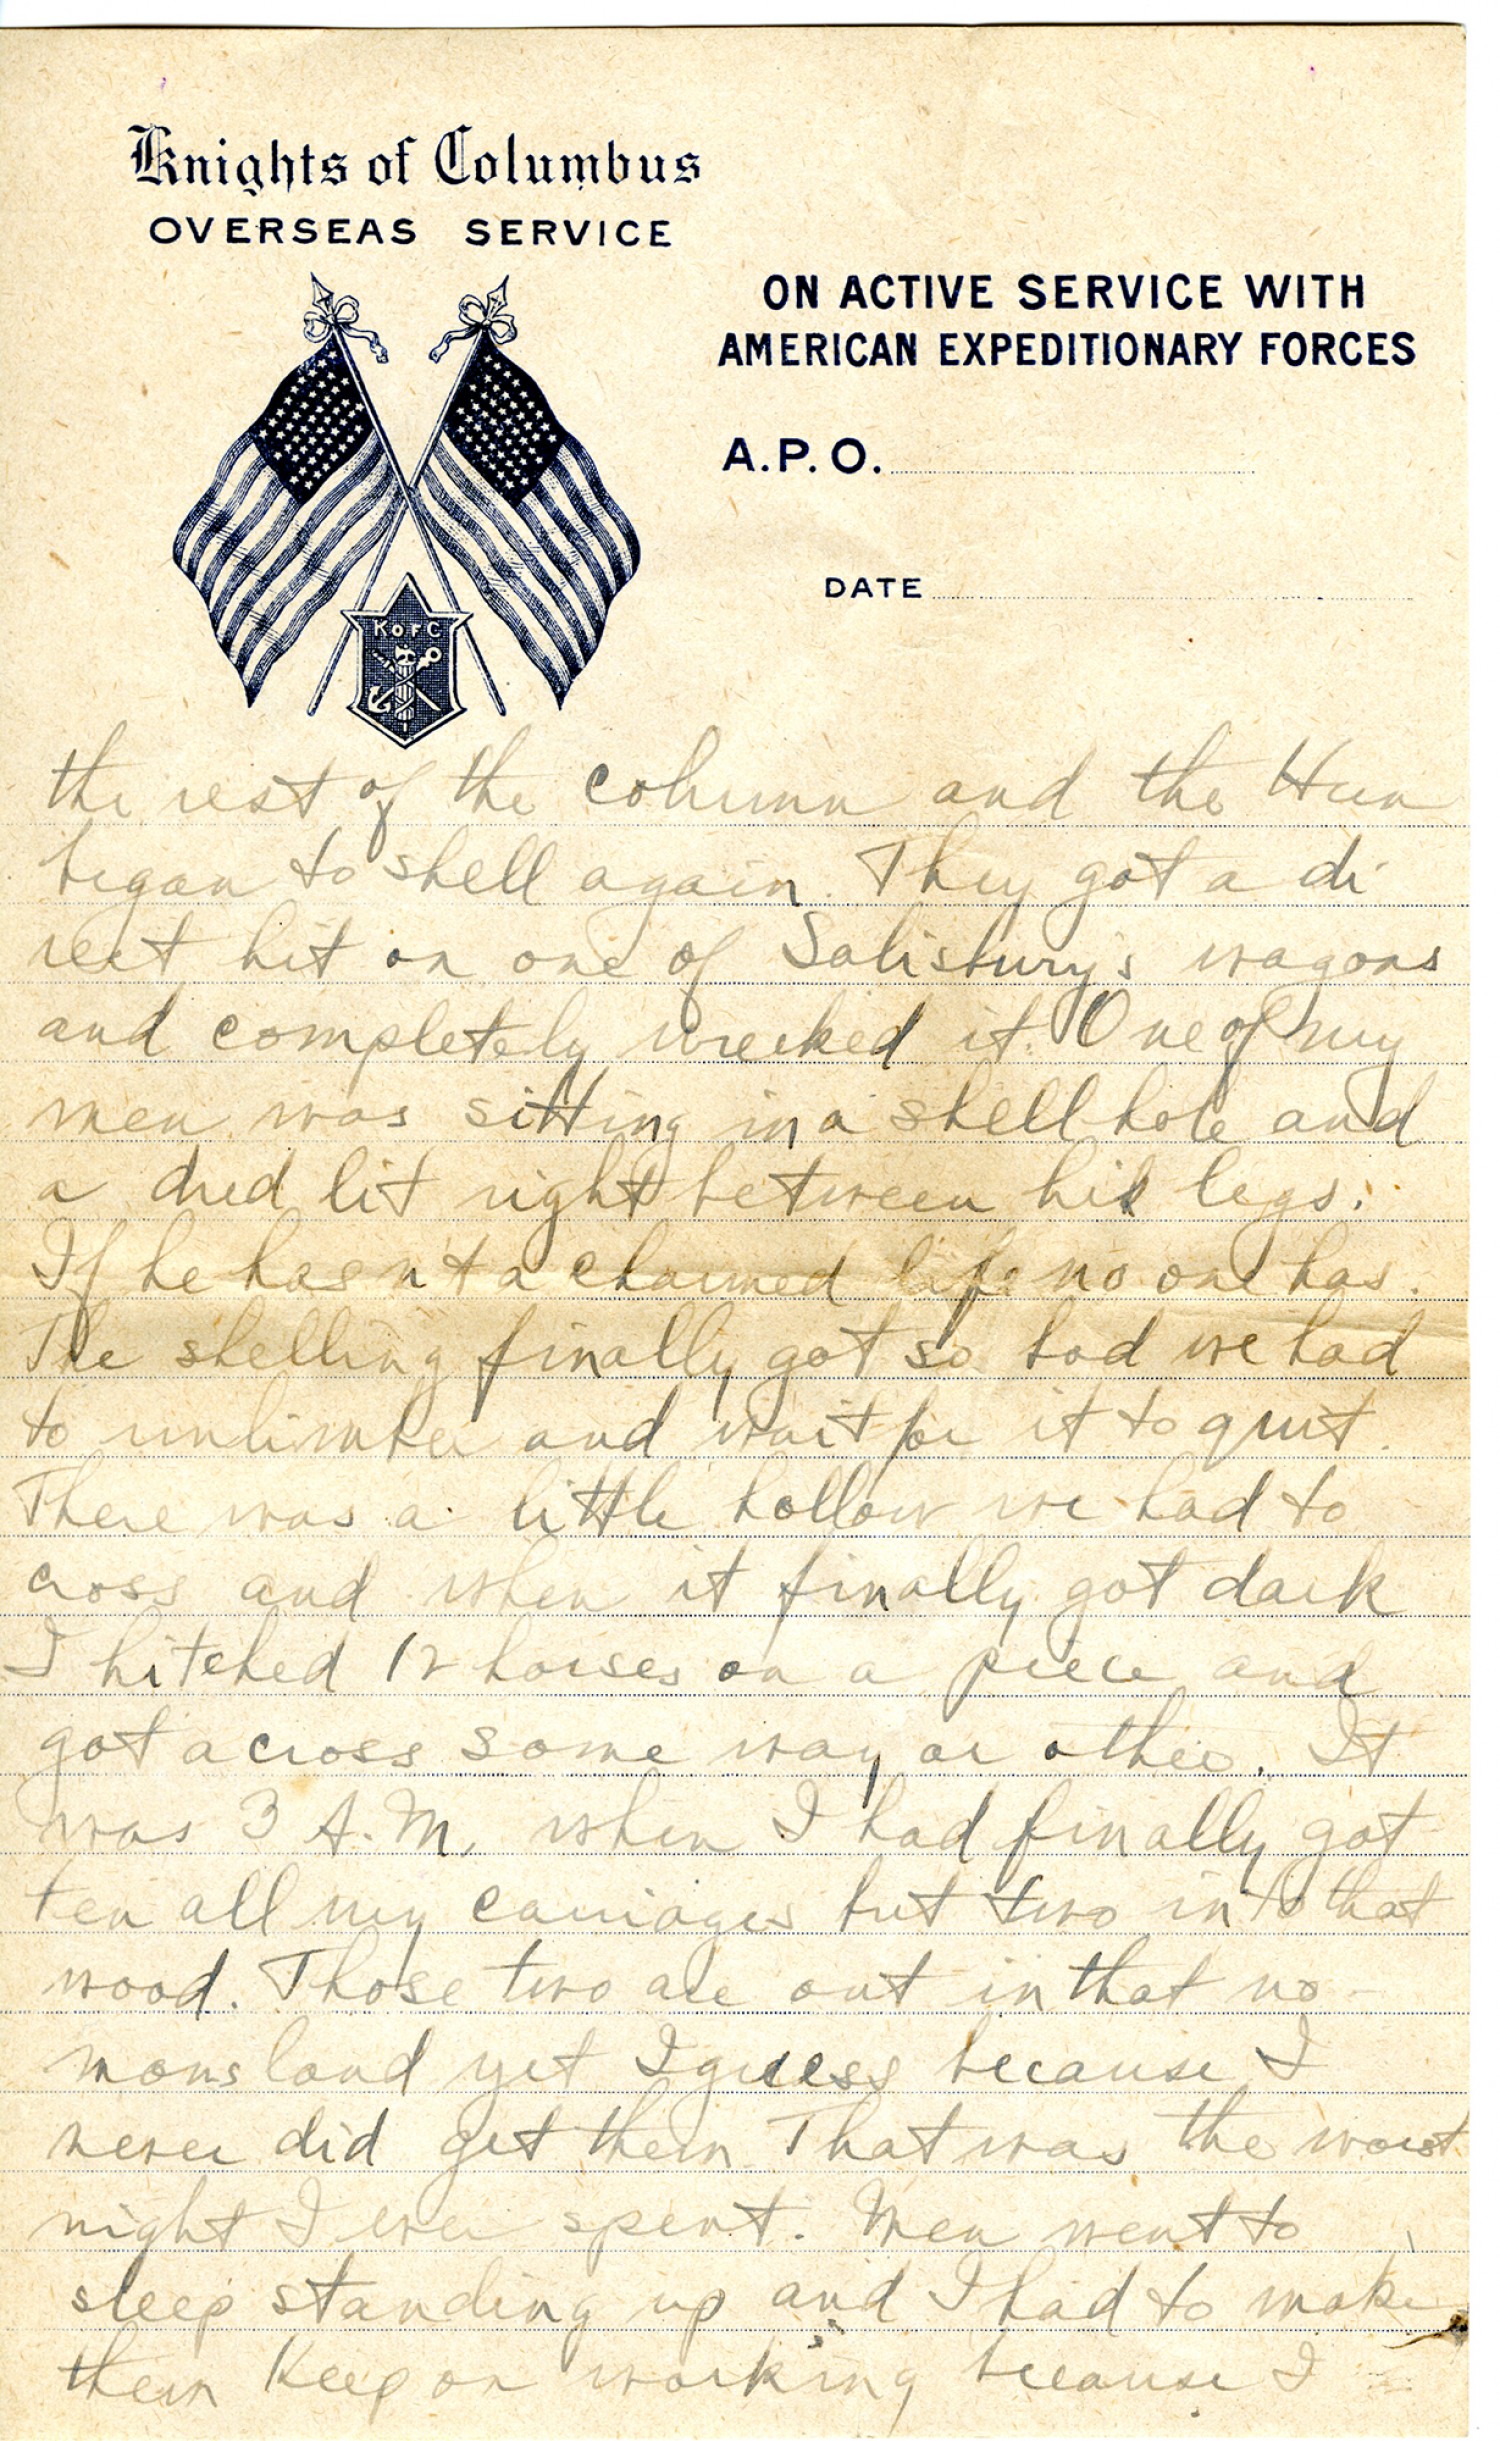 Knights of Columbus
OVERSEAS SERVICE
ON ACTIVE SERVICE WITH
AMERICAN EXPEDITIONARY FORCES
A.P.O.
DATE
K OF C
the rest of the column and the Hun
began to shell again. They got a di
rect hit on one of Salisbury's wagons
and completely wrecked it. One of my
men was sitting in a shell hole and
a dud lit right between his legs.
If he hasn't a charmed life no one has.
The shelling finally got so bad we had
to unlimber and wait for it to quit.
There was a little hollow we had to
cross and when it finally got dark
I hitched 12 horses on a piece and
got across some way or other. It
was 3 A.M. when I had finally got
ten all my carriages but two into that
wood. Those two are out in that no-
mans land yet I guess because I
never did get them. That was the worst
night I ever spent. Men went to
sleep standing up and I had to make
them keep on working because I